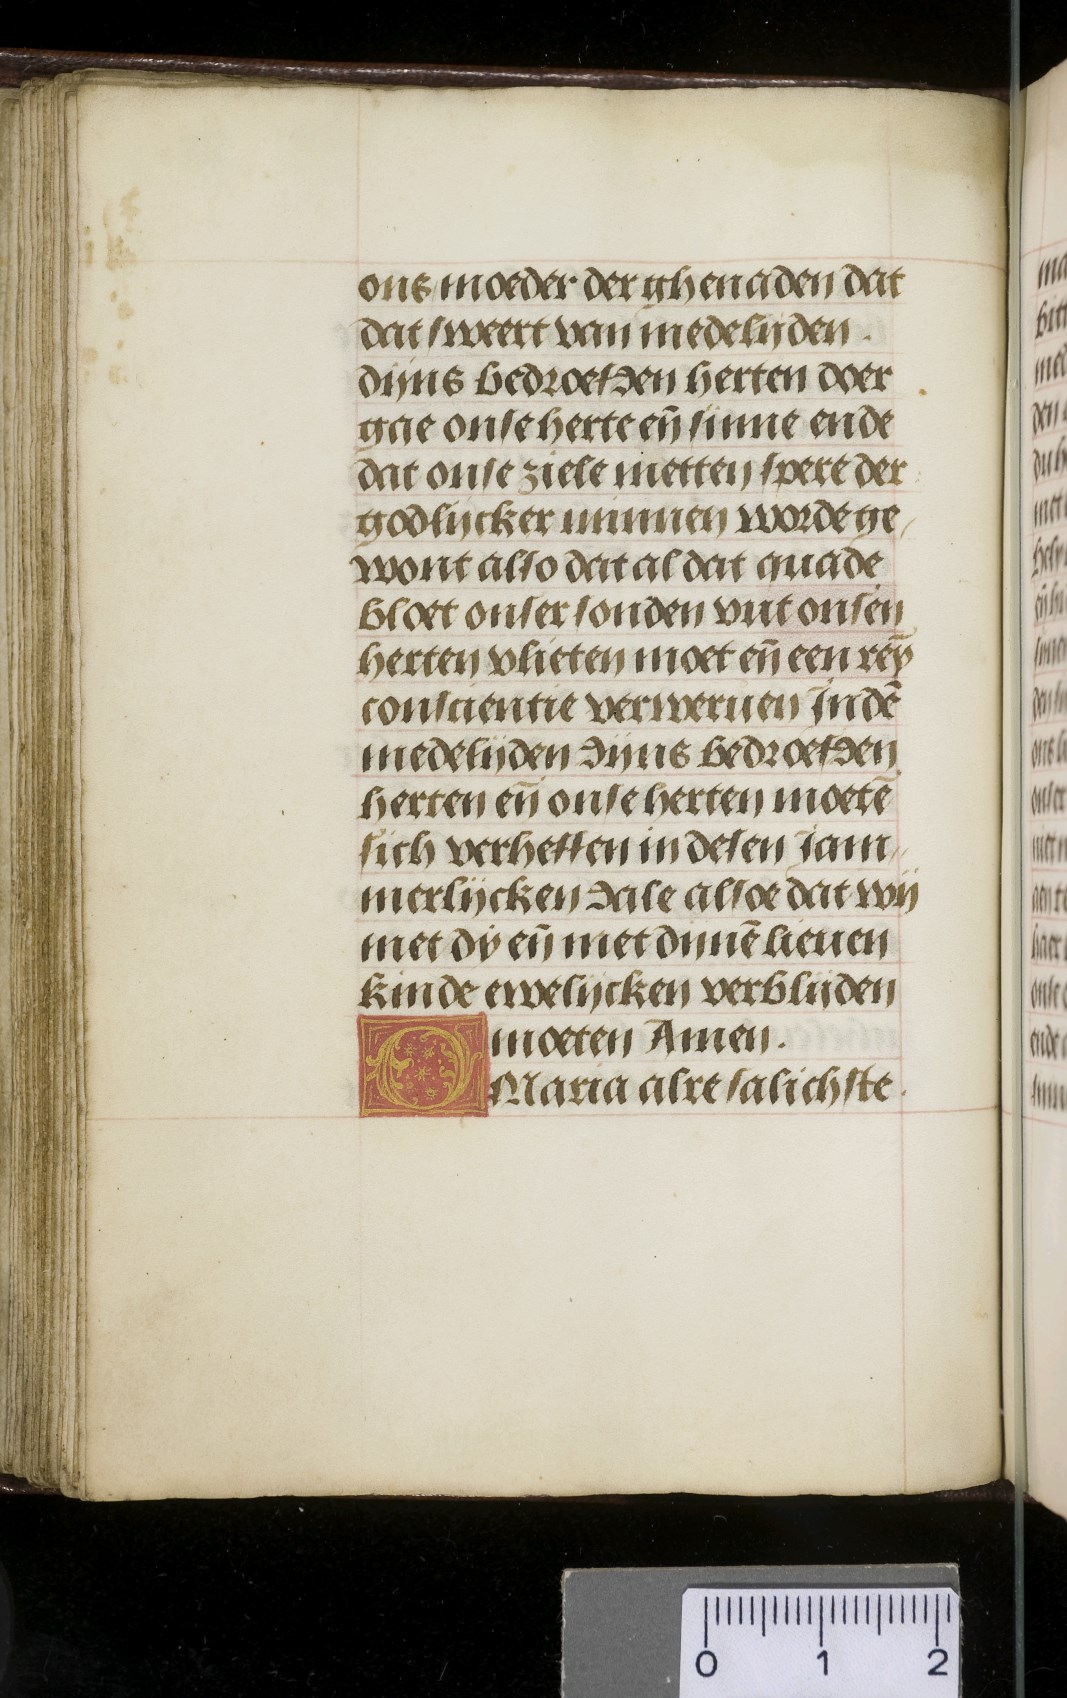 ons moeder der ghenaden dat
dat sweert van medelijden.
dijns bedroefden herten doer
gae onse herte en̄ sinne ende
dat onse ziele metten spere der
godlijcker minnen worde ge/
wont also dat al dat quade
bloet onser sonden vut onsen
herten vlieten moet en̄ een reȳ
conscientie verweruen In dē
medelijden dijns bedroefden
herten en̄ onse herten moetē
sich verheffen in desen Jam//
merlijcken dale alsoe dat wij
met dy en̄ met dijnē lieuen
kinde ewelijcken verblijden
moeten Amen.
O Maria alre salichste.
0 1 2